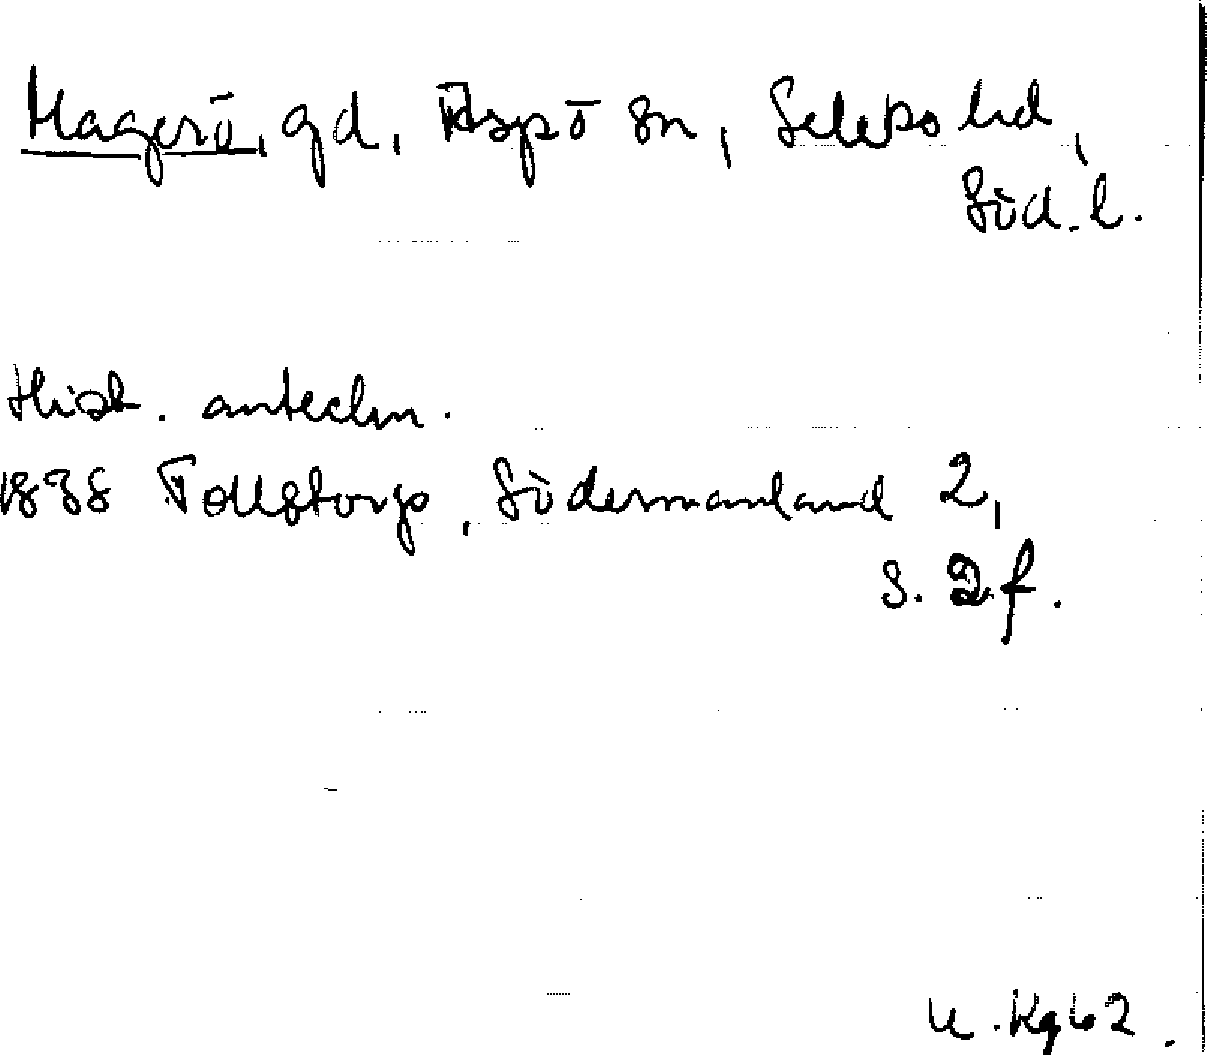 Hagerö, gd, Aspö sn, Selebo hd,
Söd. l.
Hist. anteckn.
1838 Tollstorp, Södermanland 2,
s. 2f.
U. Kg 62.